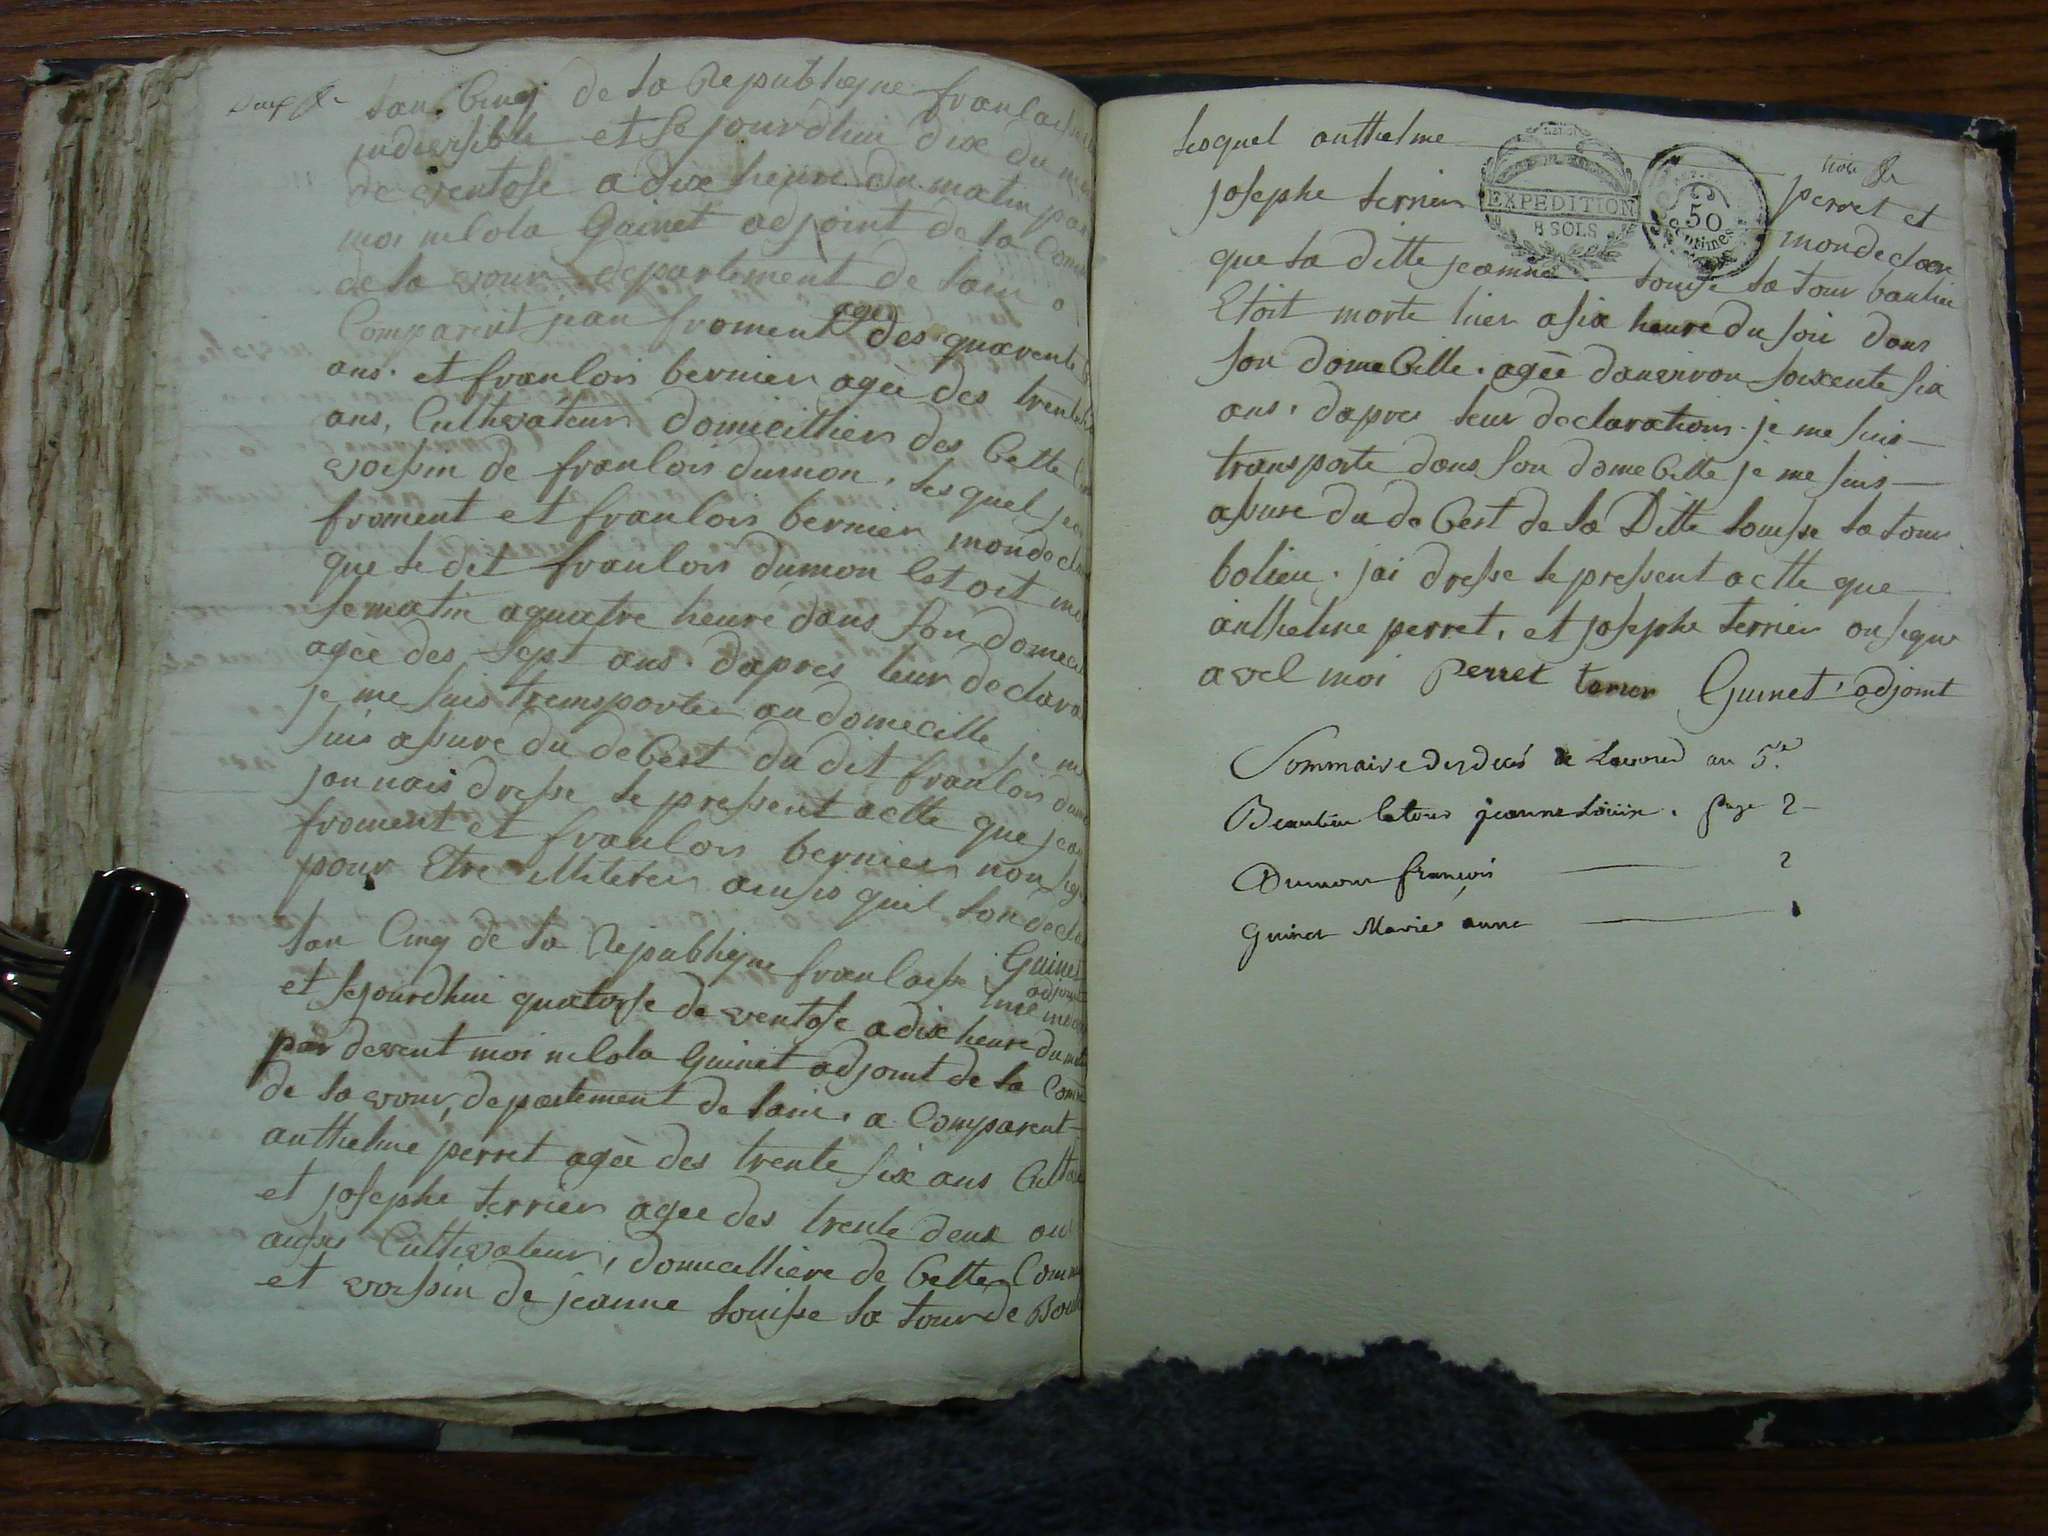 Deux
lan Cinq de la Republique franlaise
indivisible et se jourdhui dix du mois
de ventose a dix heure du matin par
moi nilola Guinet adjoint de la Comm
de la vour departement de lain a
Comparent jean froment agee des quarente
ans. et franlois bernier agèe des trente
ans, Cultivateur domicillier des Cette
voissin de franlois dumon, lesquel jean
froment et franlois bernier mon decla
que le dit franlois dumon Etoit mo
se matin aquatre heure dans son domeci
agèe des sept ans. dapres leur declara
je me suis transporter au domecille je me
suis assure du decest du dit franlois dum
jon nais dresse le pressent actte que jean
froment et franlois bernier non sig
pour Etre illiterer ainssi quil lon decla
Guinet
adjoint
lan Cinq de la Republique franlaise
et sejourdhui quatorse de ventose a dix heure du ma
par devent moi nilola Guinet adjoint de la Comm
de la vour, departement de lain. a Comparent
anthelme perret agèe des trente six ans Cultiv
et josephe terrier agee des trente deux an
aussi Cultivateur, domicilliere de Cette Comm
et voissin de jeanne louisse la tour de Boul
lesquel anthelme perret et
trois
EXPEDITION
8 SOLS
50
centimes
josephe terrier mon declare
que la ditte jeanne louise la tour baulieu
Etoit morte hier asix heure du soir dans
son domecille. agèe danviron soixente six
ans. dapres leur declaration. je me suis
transporte dans son domecille je me suis
assure du decest de la Ditte louisse la tour
bolieu. jai dresse le pressent actte que
anthelme perret, et josephe terrier on signe
avel moi Perret terrier Guinet, adjoint
Sommaire des decés de Lavour an 5.e
Beaulieu latour jeanne Louise. page 2
Dumon françois 2
Guinet Marie anne 1